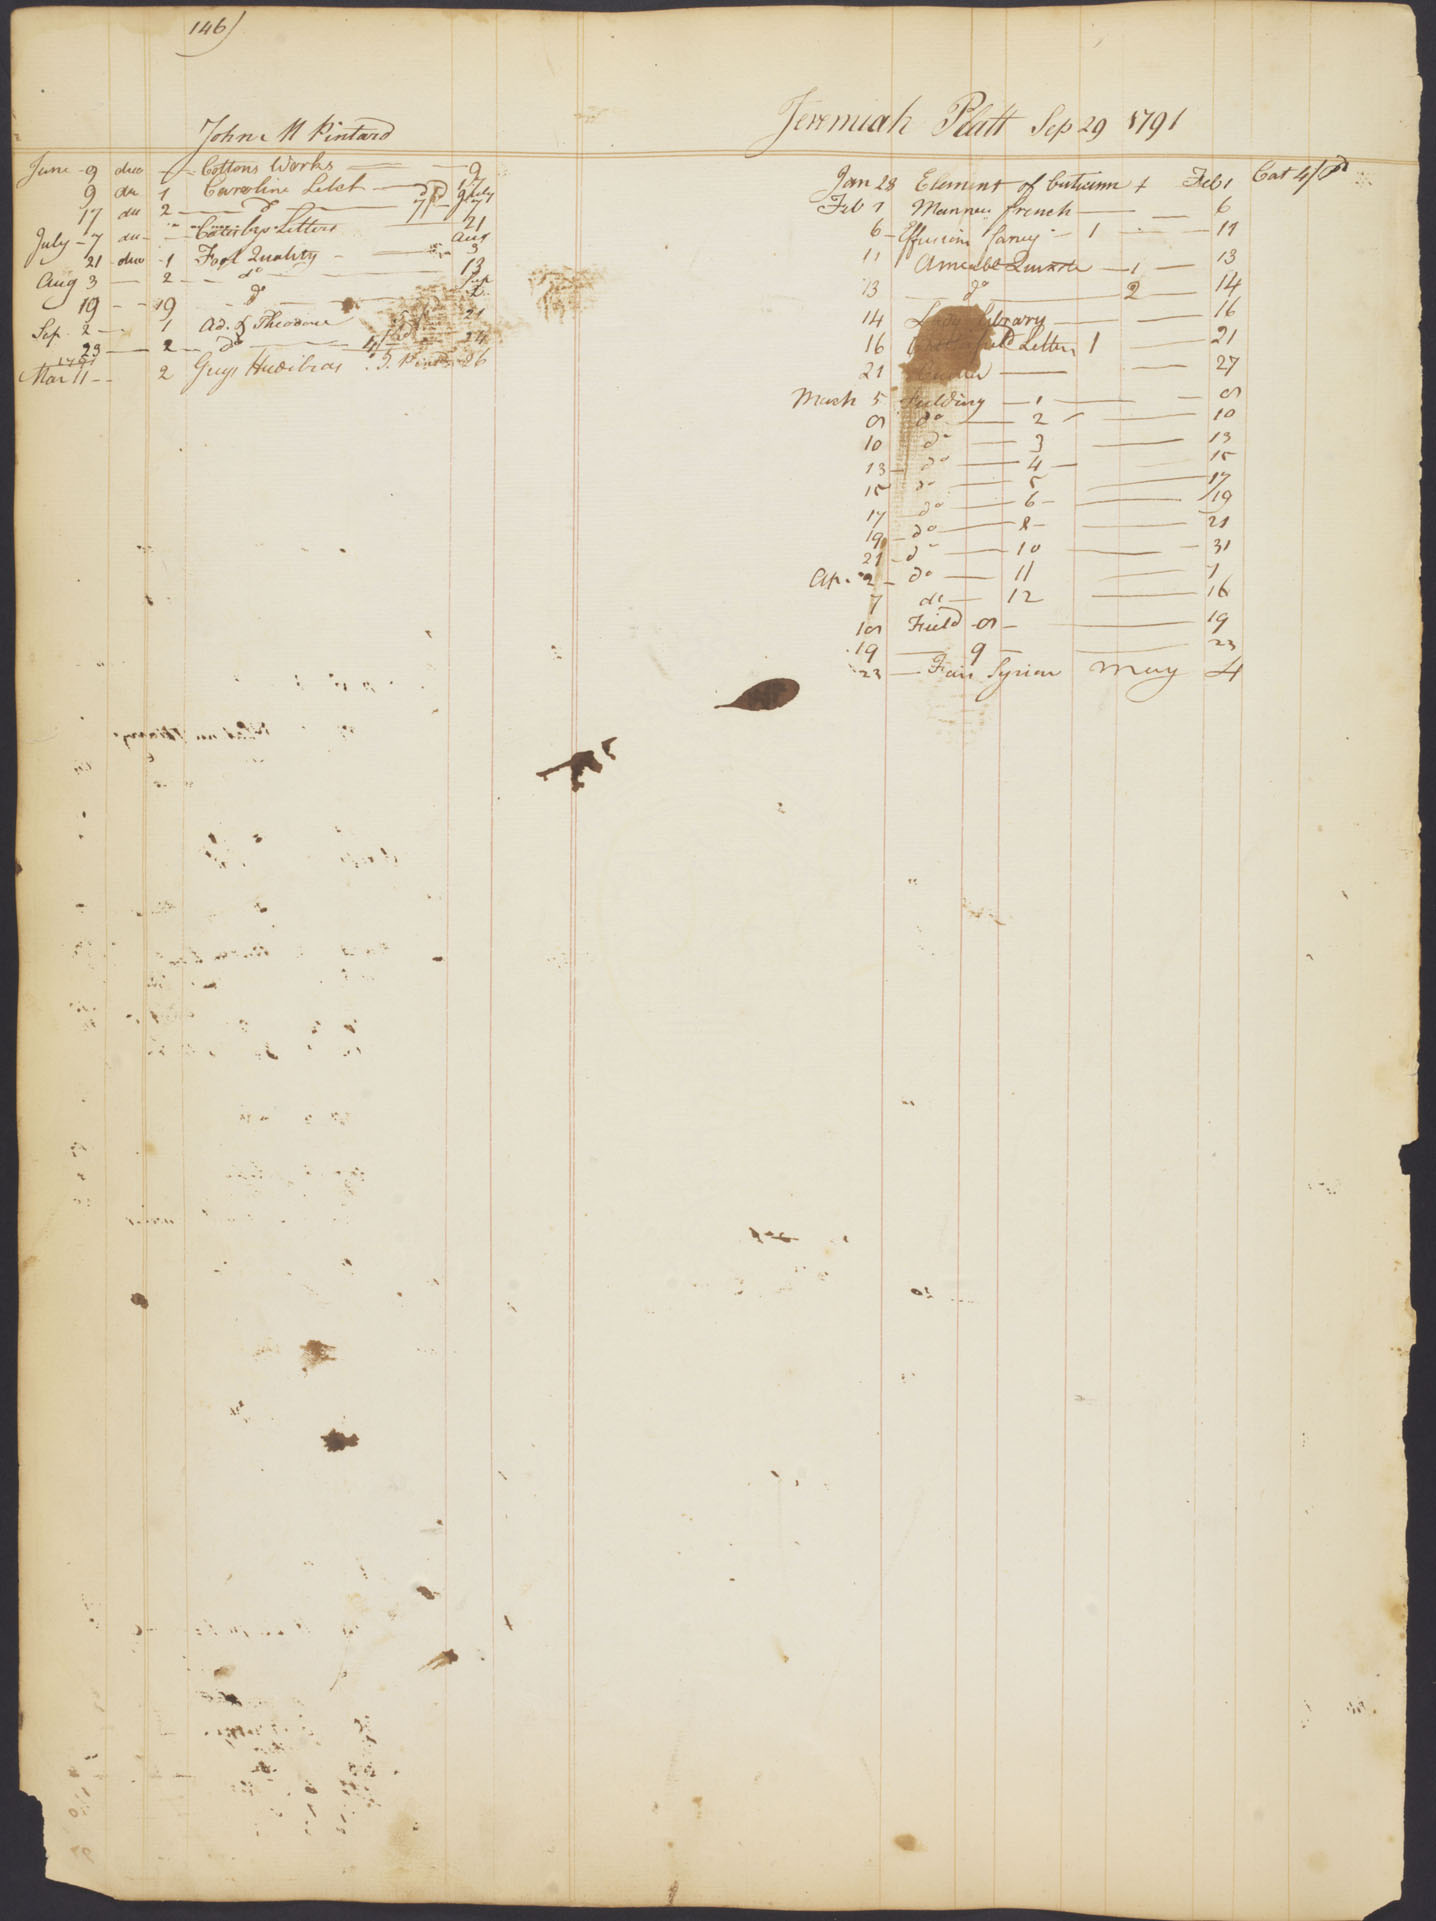 146)
John M Pintard
June 9 duo 1 Cottons Works 9
9 du 1 Caroline Litch 17
17 du 2 do July 7
July 7 du Coterbys Letters 21
21 duo 1 Fool Quality Aug 3
Aug 3 2 do 13
19 19 do Sep 2
Sep 2 1 Ad. of Theodore 21
23 2 do 24
1791
Mar 11 2 Greys Hudibras 26
Jeremiah Platt Sep 29 1791
Jan 28 Element of Criticism + Feb 1 Cat 4/ Pd
Feb 1 Manner french 6
6 Effusion fancy 1 11
11 Ameable Quixote 1 13
13 do 2 14
14 Library 16
16 Letters 1 21
21 27
March 5 Fielding 1 8
8 do 2 10
10 do 3 13
13 do 4 15
15 do 5 17
17 do 6 19
19 do 8 21
21 do 10 31
Ap. 2 do 11 7
7 do 12 16
18 Field 8 19
19 9 23
23 Fair Syrian May 4